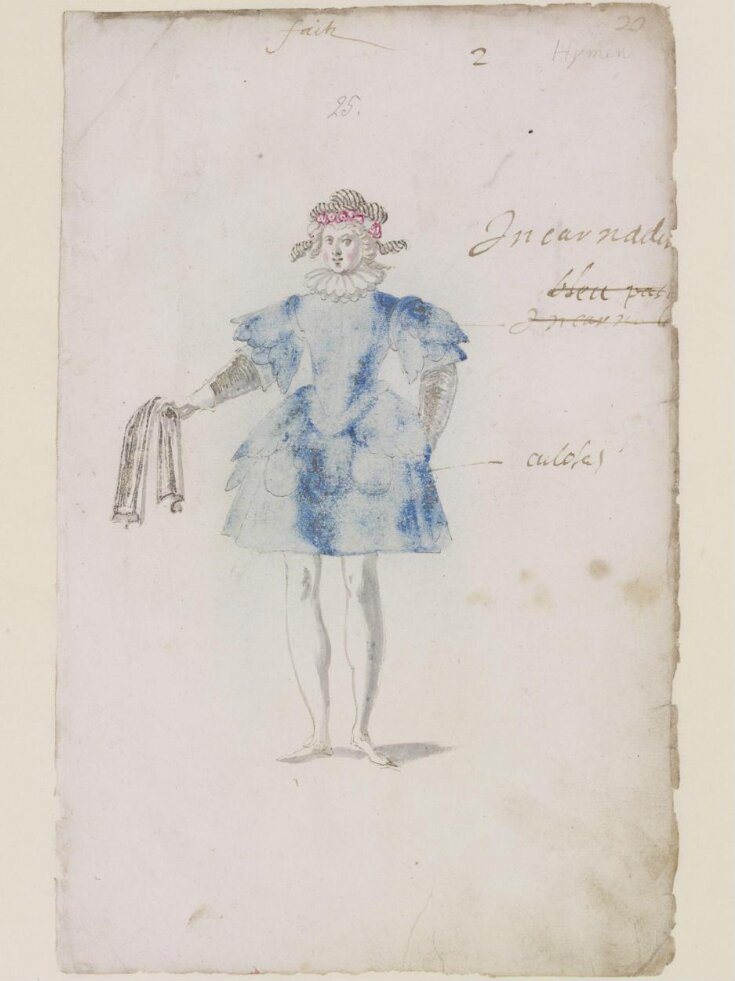 20
faict
2
Hymen
25.
Incarnadin
bleu pa
Incarna